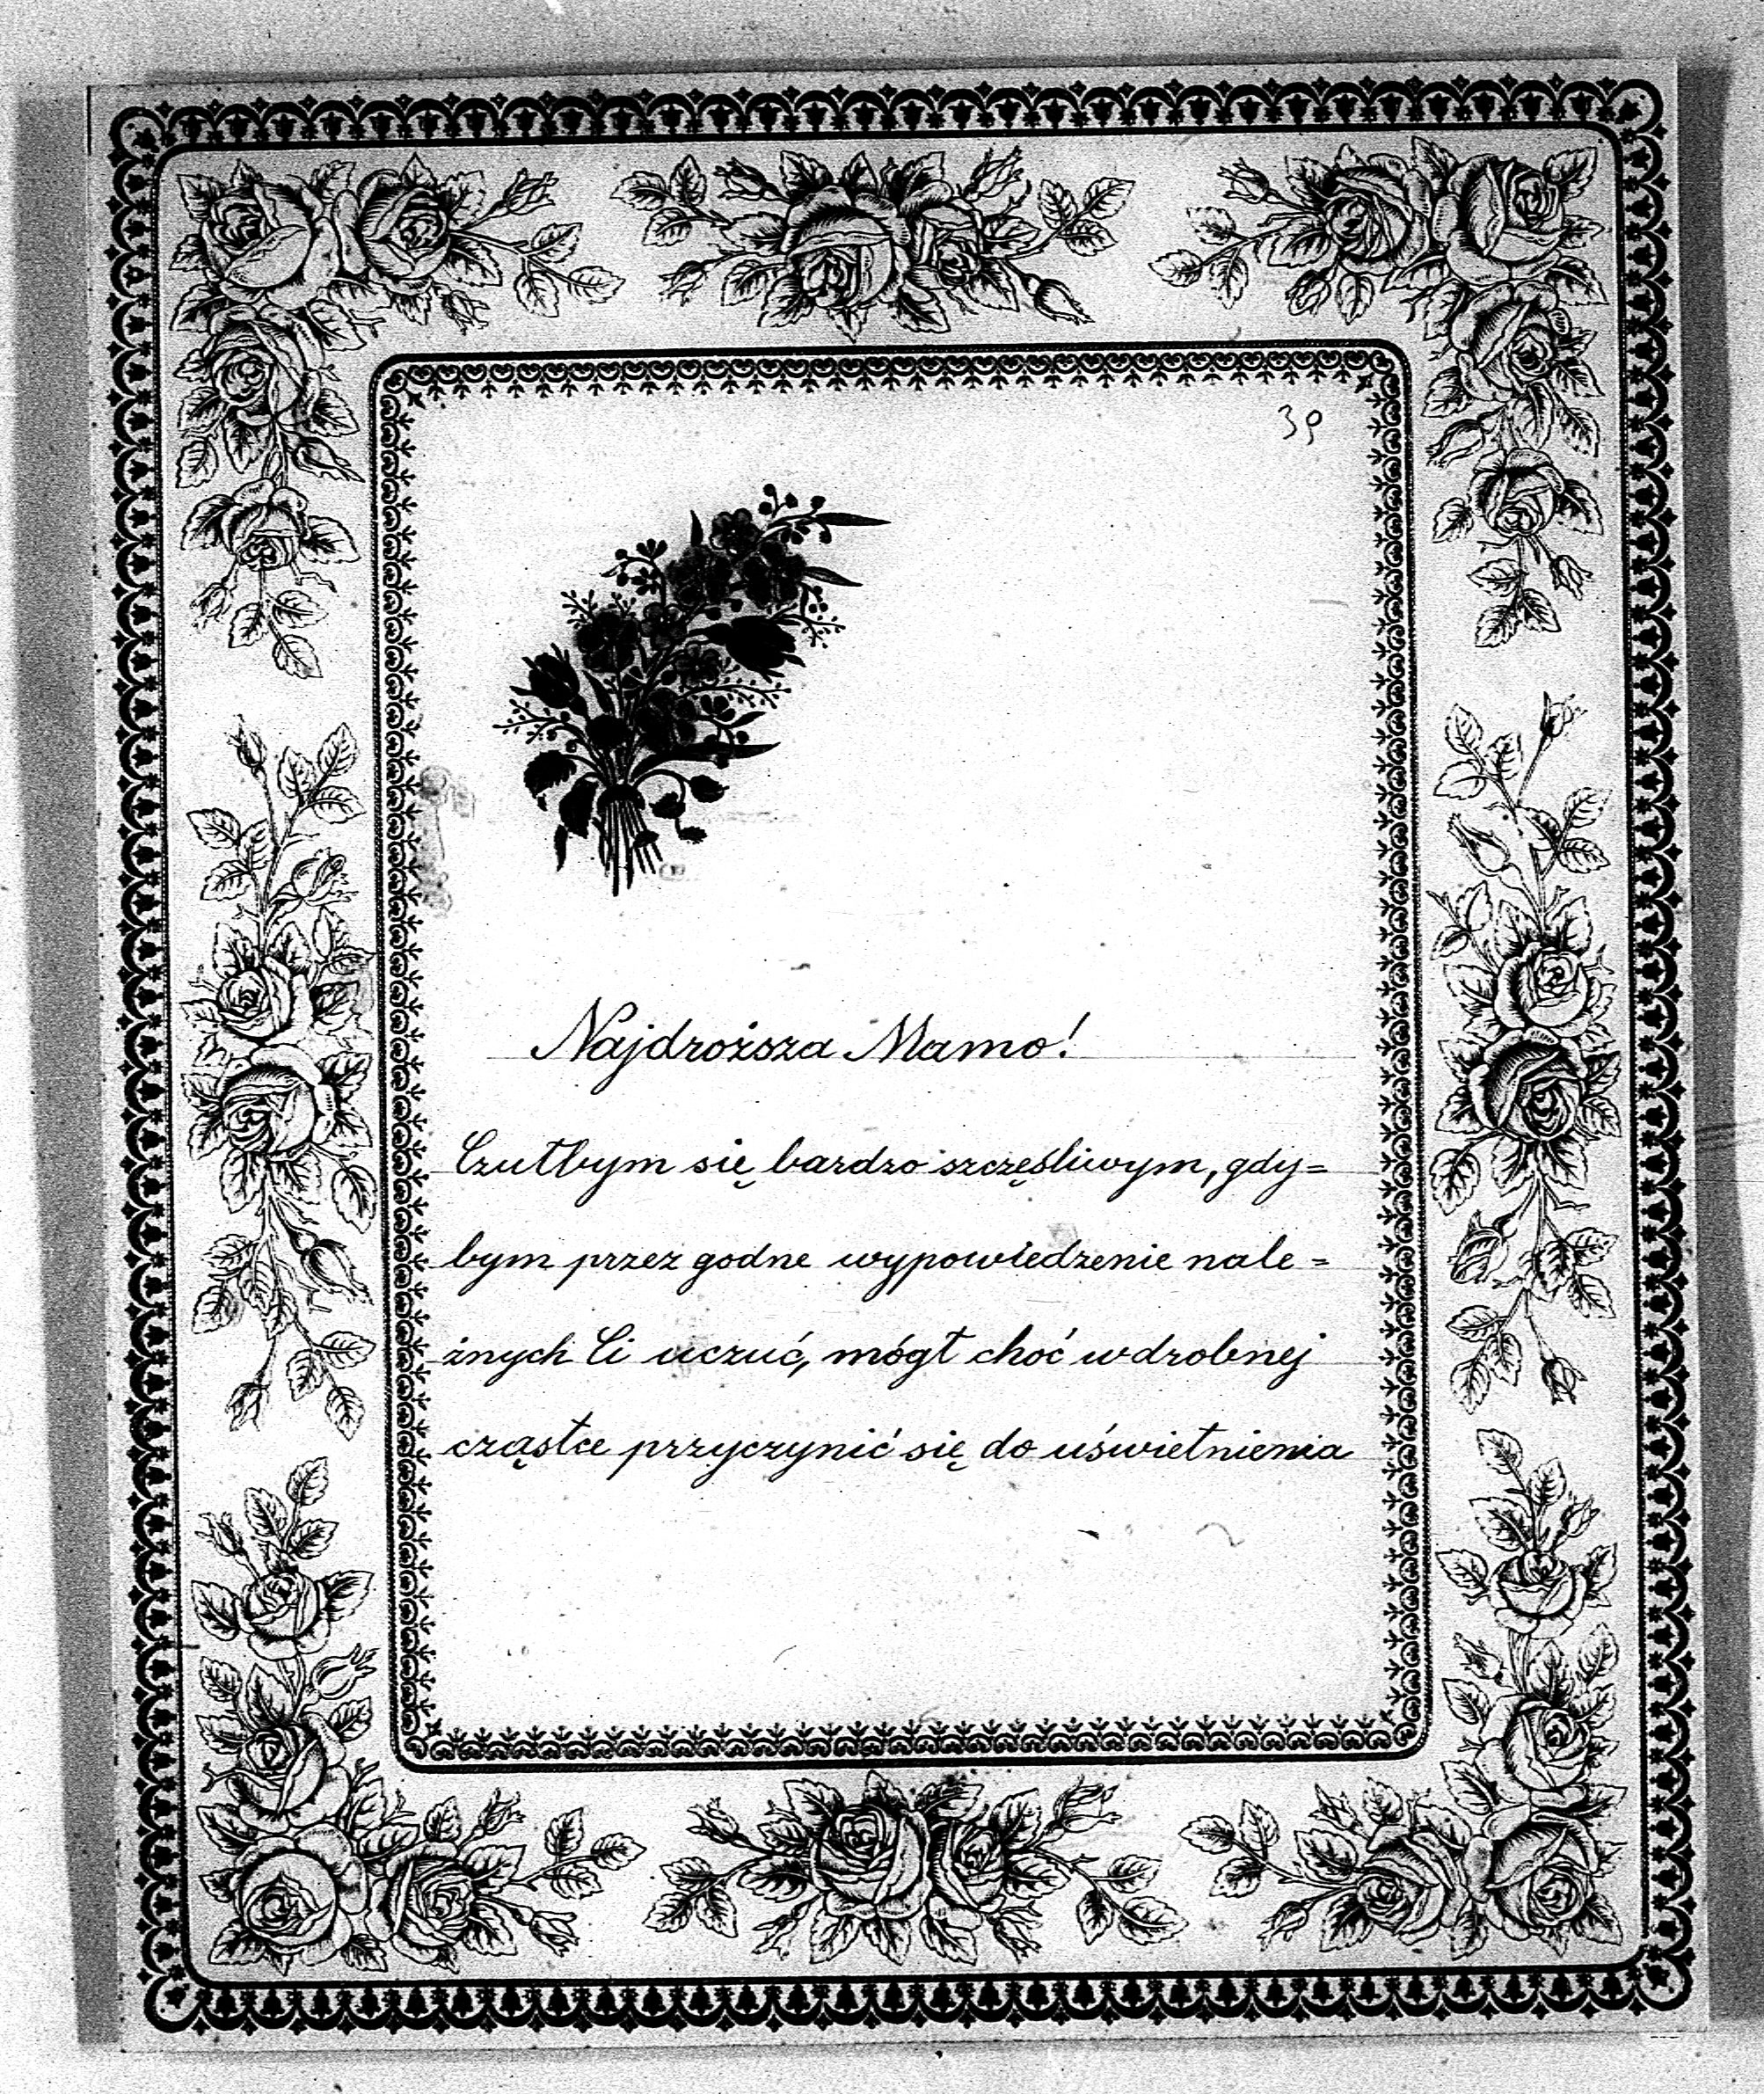 39
Najdroższa Mamo!
Czułbym się bardzo szczęśliwym, gdy=
bym przez godne wypowiedzenie nale=
żnych Ci uczuć, mógł choć w drobnej
cząstce przyczynić się do uświetnienia